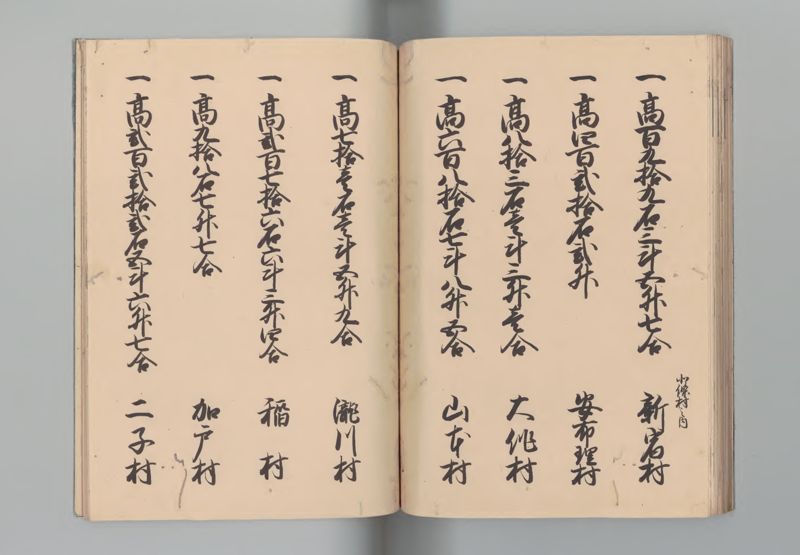 一 高百九拾九石三斗五升七合
小條村之内
新宿村
一 高四百弐拾石弐升
安布里村
一 高八拾三石壱斗三升壱合
大作村
一 高六百八拾石七斗八升五合
山本村
一 高七拾壱石壱斗五升九合
瀧川村
一 高弐百七拾六石六斗三升四合
稲村
一 高九拾八石七升七合
加戸村
一 高弐百弐拾弐石五斗六升七合
二子村